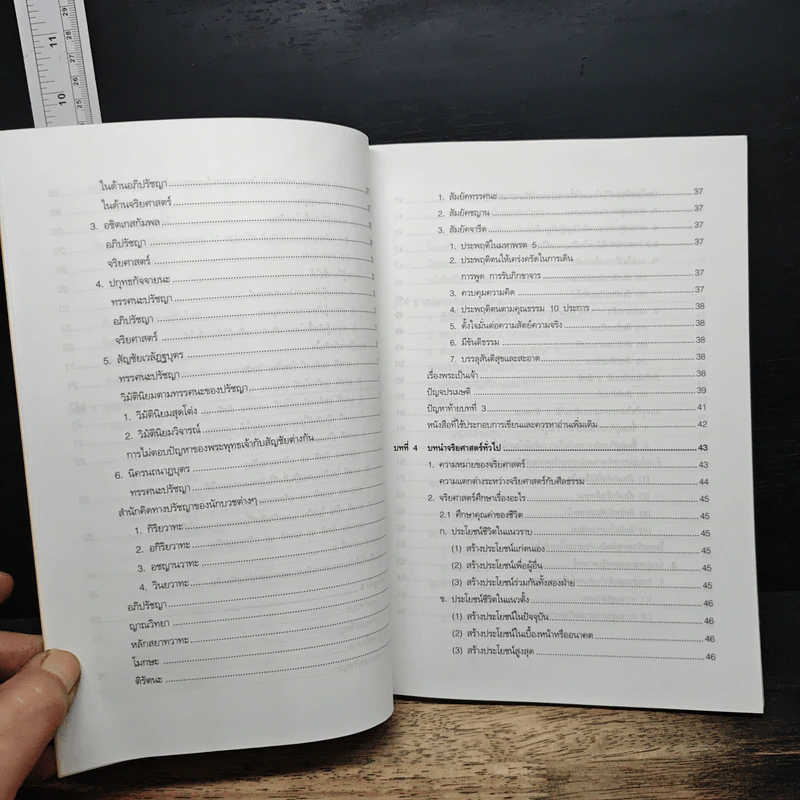 11
10
29
28
27
26
25
ในด้านอภิปรัชญา
ในด้านจริยศาสตร์
3. อชิตเกสกัมพล
อภิปรัชญา
จริยศาสตร์
4. ปกุทธกัจจายนะ
ทรรศนะปรัชญา
อภิปรัชญา
จริยศาสตร์
5. สัญชัยเวลัฏฐบุตร
ทรรศนะปรัชญา
วิมัตินิยมตามทรรศนะของปรัชญา
1. วิมัตินิยมสุดโต่ง
2. วิมัตินิยมวิจารณ์
การไม่ตอบปัญหาของพระพุทธเจ้ากับสัญชัยต่างกัน
6. นิครนถนาฏบุตร
ทรรศนะปรัชญา
สำนักคิดทางปรัชญาของนักบวชต่างๆ
1. กิริยวาทะ
2. อกิริยวาทะ
3. อชญานวาทะ
4. วินยวาทะ
อภิปรัชญา
ญาณวิทยา
หลักสยาทวาทะ
โมกษะ
ติรัตนะ
1. สัมยัคทรรศนะ 37
2. สัมยัคชญาน 37
3. สัมยัคจาริต 37
1. ประพฤติในมหาพรต 5 37
2. ประพฤติตนให้เคร่งครัดในการเดิน
การพูด การรับภิกขาจาร 37
3. ควบคุมความคิด 37
4. ประพฤติตนตามคุณธรรม 10 ประการ 38
5. ตั้งใจมั่นต่อความสัตย์ความจริง 38
6. มีขันติธรรม 38
7. บรรลุสันติสุขและสะอาด 38
เรื่องพระเป็นเจ้า 38
ปัญจปรเมษติ 39
ปัญหาท้ายบทที่ 3 41
หนังสือที่ใช้ประกอบการเขียนและควรหาอ่านเพิ่มเติม 42
บทที่ 4 บทนำจริยศาสตร์ทั่วไป 43
1. ความหมายของจริยศาสตร์ 43
ความแตกต่างระหว่างจริยศาสตร์กับศีลธรรม 44
2. จริยศาสตร์ศึกษาเรื่องอะไร 45
2.1 ศึกษาคุณค่าของชีวิต 45
ก. ประโยชน์ชีวิตในแนวราบ 45
(1) สร้างประโยชน์แก่ตนเอง 45
(2) สร้างประโยชน์เพื่อผู้อื่น 45
(3) สร้างประโยชน์ร่วมกันทั้งสองฝ่าย 45
ข. ประโยชน์ชีวิตในแนวตั้ง 46
(1) สร้างประโยชน์ในปัจจุบัน 46
(2) สร้างประโยชน์ในเบื้องหน้าหรืออนาคต 46
(3) สร้างประโยชน์สูงสุด 46